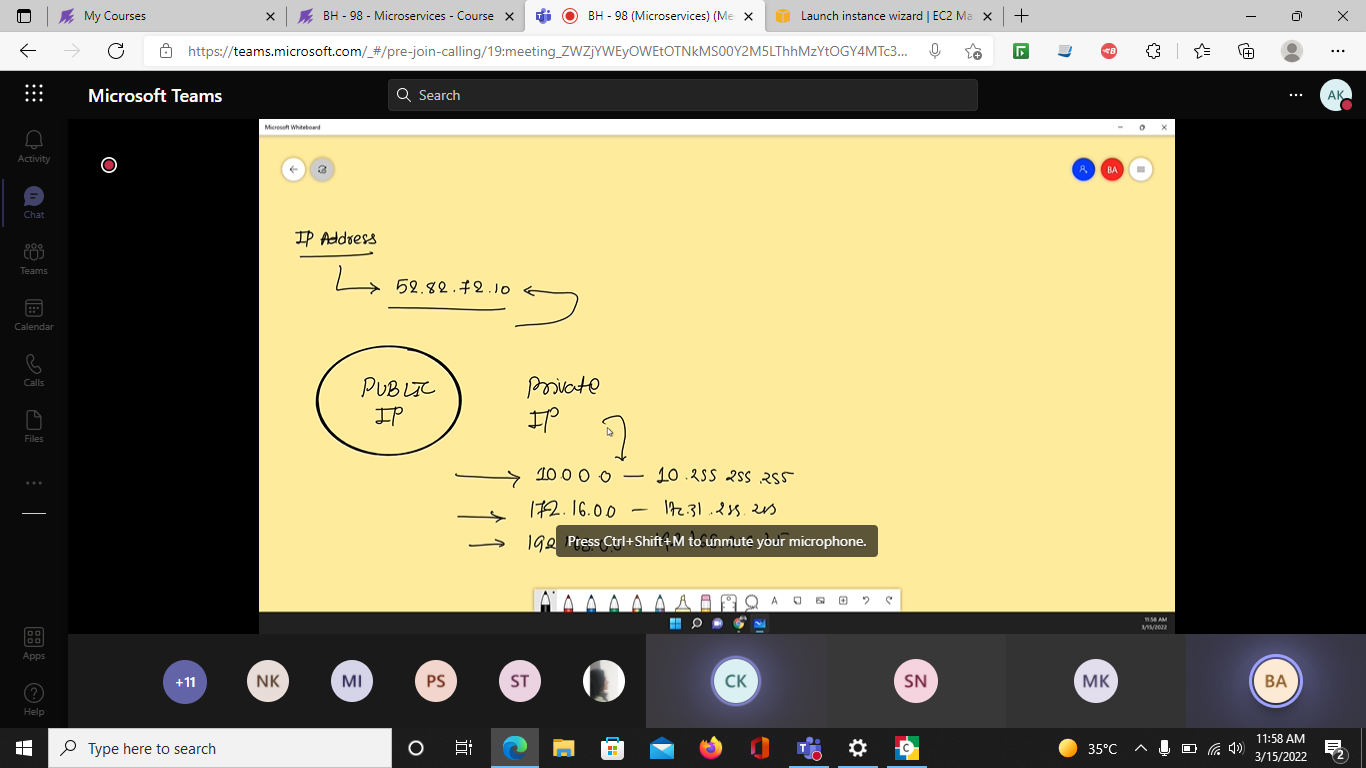 My Courses
BH - 98 - Microservices - Course
BH - 98 (Microservices) (Me
Launch instance wizard | EC2 Ma
https://teams.microsoft.com/_#/pre-join-calling/19:meeting_ZWZjYWEyOWEtOTNkMS00Y2M5LThhMzYtOGY4MTc3...
Microsoft Teams
Search
AK
Activity
Chat
Teams
Calendar
Calls
Files
Apps
Help
Microsoft Whiteboard
BA
IP Address
52.82.72.10
PUBLIC
IP
Private
IP
10.0.0.0 — 10.255.255.255
172.16.0.0 —
192
Press Ctrl+Shift+M to unmute your microphone.
A
11:58 AM
3/15/2022
+11
NK
MI
PS
ST
CK
SN
MK
BA
Type here to search
35°C
11:58 AM
3/15/2022
2